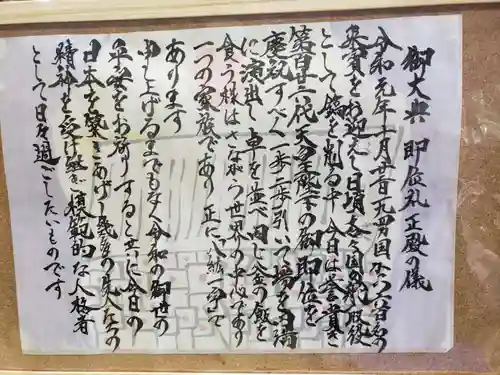 御大典 即位礼正殿の儀
令和元年十月廿二日 百九四国から六百名の
来賓をお迎えし 日頃 各々国の代表 取役
として鎬を削る中 今日は 誉貴き
第百廿六代天皇陛下の御即位を
慶祝すべく 一歩二歩引いて場を円満
に演出し 卓を並べ 同じ釜の飯を
食う様は さながら世界の中心であり
一つの家族であり 正に八紘一宇で
あります
申し上げるまでもなく 令和の御世の
平安をお祈りすると共に 今日の
日本を築きあげし 幾多の先人たちの
精神を受け継ぎ 模範的な人格者
として日々過ごしたいものです